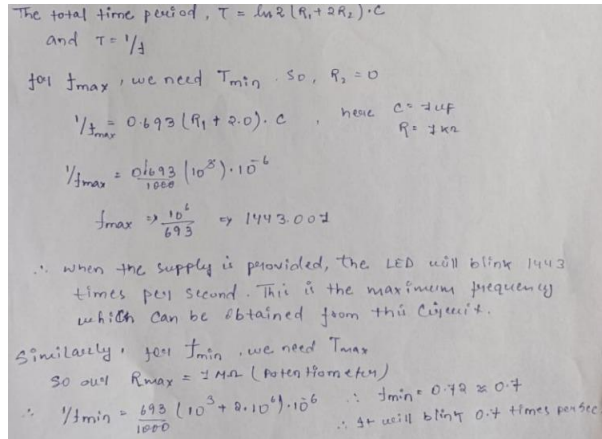 The total time period, T = ln2 (R₁ + 2R₂)·C
and T = 1/f
for fmax, we need Tmin. So, R₂ = 0
1/fmax = 0.693 (R₁ + 2.0). C , here C = 1uF
R = 1KΩ
1/fmax = 693/1000 (10³)·10⁻⁶
fmax => 10⁶/693 => 1443.001
∴ when the supply is provided, the LED will blink 1443
times per second. This is the maximum frequency
which can be obtained from this circuit.
Similarly, for fmin, we need Tmax
So our Rmax = 1MΩ (Potentiometer)
∴ 1/fmin = 693/1000 (10³ + 2.10⁶)·10⁻⁶ ∴ fmin = 0.72 ≈ 0.7
∴ It will blink 0.7 times per sec